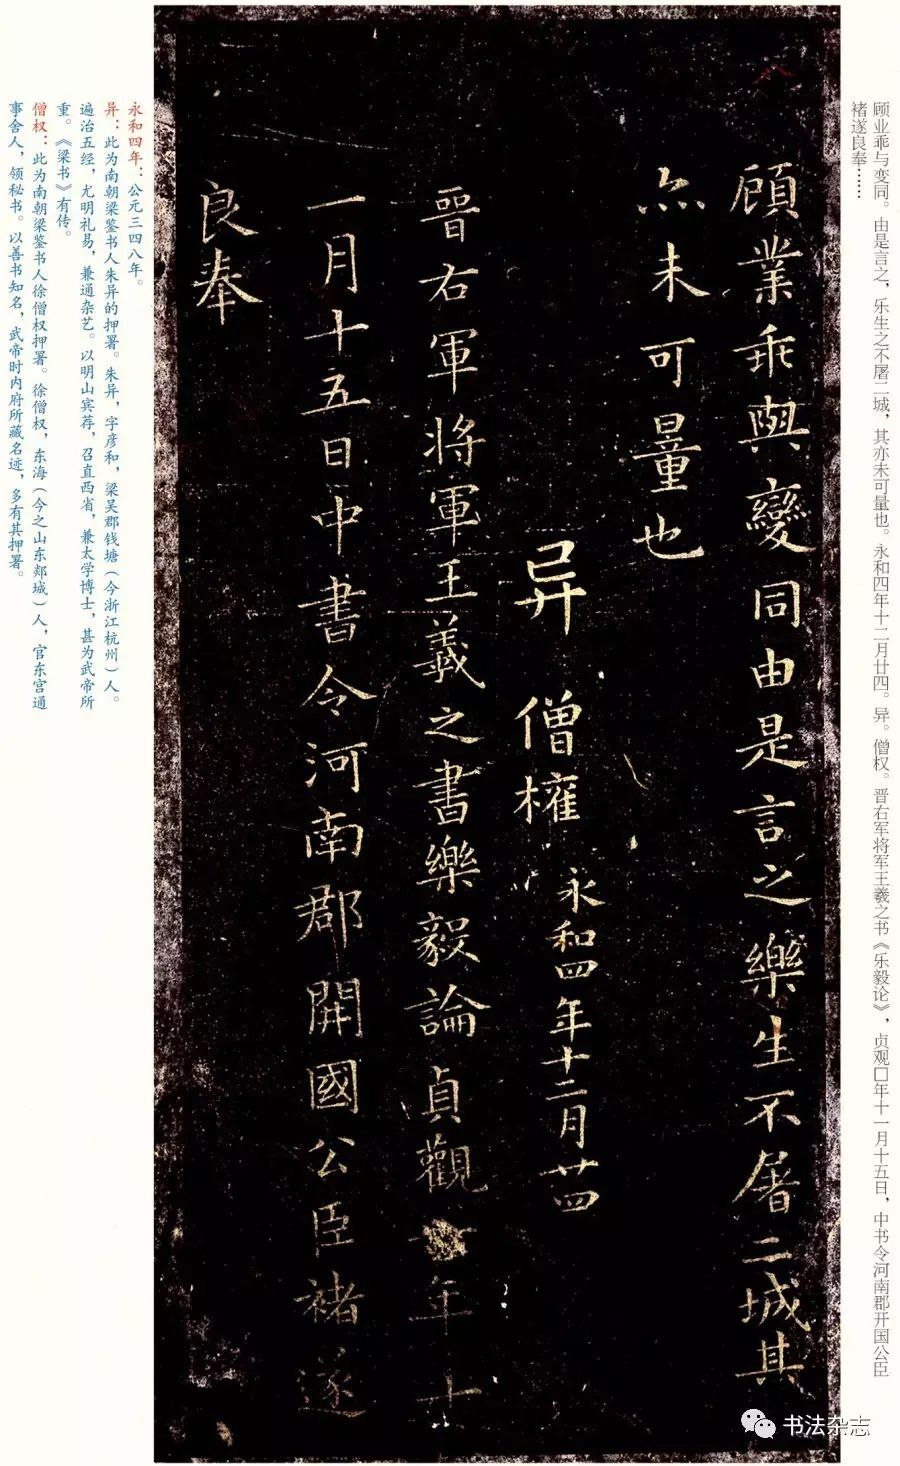 顾业乖与变同。由是言之，乐生之不屠二城，其亦未可量也。永和四年十二月廿四。异。僧权。晋右军将军王羲之书《乐毅论》，贞观□年十一月十五日，中书令河南郡开国公臣
褚遂良奉……
顧業乖與變同由是言之樂生不屠二城其
亦未可量也
永和四年十二月廿四
异 僧權
晉右軍將軍王羲之書樂毅論貞觀年十
一月十五日中書令河南郡開國公臣褚遂
良奉
永和四年：公元三四八年。
异：此为南朝梁鉴书人朱异的押署。朱异，字彦和，梁吴郡钱塘（今浙江杭州）人。
遍治五经，尤明礼易，兼通杂艺。以明山宾荐，召直西省，兼太学博士，甚为武帝所
重。《梁书》有传。
僧权：此为南朝梁鉴书人徐僧权押署。徐僧权，东海（今之山东郯城）人，官东宫通
事舍人，领秘书。以善书知名，武帝时内府所藏名迹，多有其押署。
书法杂志